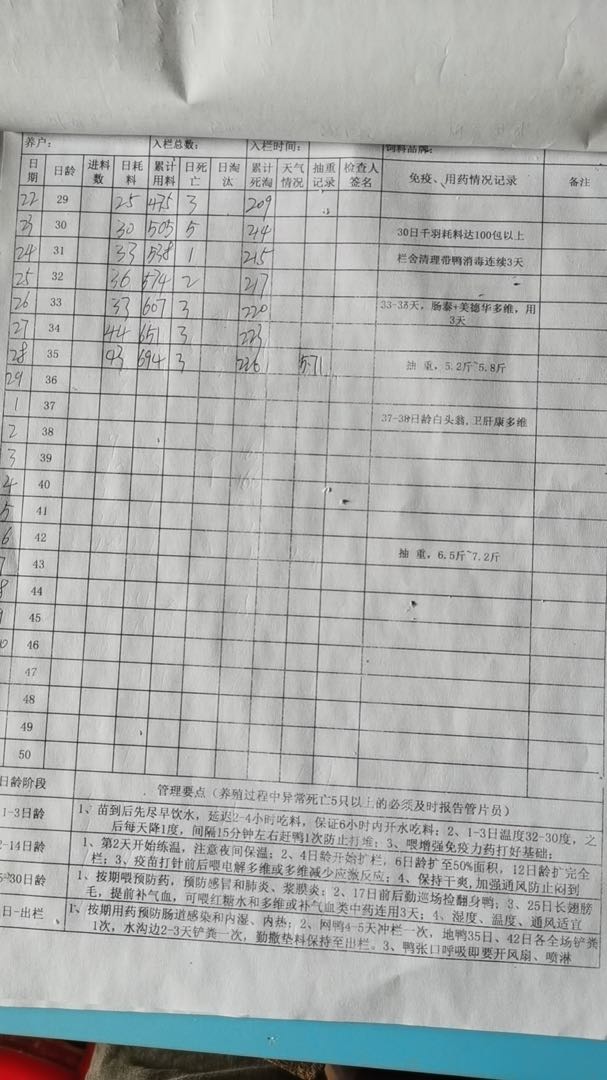 养户： 入栏总数： 入栏时间： 饲料品牌：
日期 日龄 进料数 日耗料 累计用料 日死亡 日淘汰 累计死淘 天气情况 抽重记录 检查人签名 免疫、用药情况记录 备注
22 29 25 475 3 209
23 30 30 505 5 214 30日千羽耗料达100包以上
24 31 33 538 1 215 栏舍清理带鸭消毒连续3天
25 32 36 574 2 217
26 33 33 607 3 220 33-38天，肠泰+美德华多维，用3天
27 34 44 651 3 223
28 35 43 694 3 226 5.71 抽 重，5.2斤~5.8斤
29 36
1 37 37-38日龄白头翁,卫肝康多维
2 38
3 39
4 40
5 41
6 42 抽 重，6.5斤~7.2斤
7 43
8 44
45
46
47
48
49
50
日龄阶段 管理要点（养殖过程中异常死亡5只以上的必须及时报告管片员）
1-3日龄 1、苗到后先尽早饮水，延迟2-4小时吃料，保证6小时内开水吃料；2、1-3日温度32-30度，之
后每天降1度，间隔15分钟左右赶鸭1次防止打堆；3、喂增强免疫力药打好基础；
-14日龄 1、第2天开始练温，注意夜间保温；2、4日龄开始扩栏，6日龄扩至50%面积，12日龄扩完全
栏；3、疫苗打针前后喂电解多维或多维减少应激反应；4、保持干爽,加强通风防止闷到
-30日龄 1、按期喂预防药，预防感冒和肺炎、浆膜炎；2、17日前后勤巡场捡翻身鸭；3、25日长翅膀
毛，提前补气血，可喂红糖水和多维或补气血类中药连用3天；4、湿度、温度、通风适宜
日-出栏 1、按期用药预防肠道感染和内湿、内热；2、网鸭4-5天冲栏一次，地鸭35日、42日各全场铲粪
1次，水沟边2-3天铲粪一次，勤撒垫料保持至出栏。3、鸭张口呼吸即要开风扇、喷淋